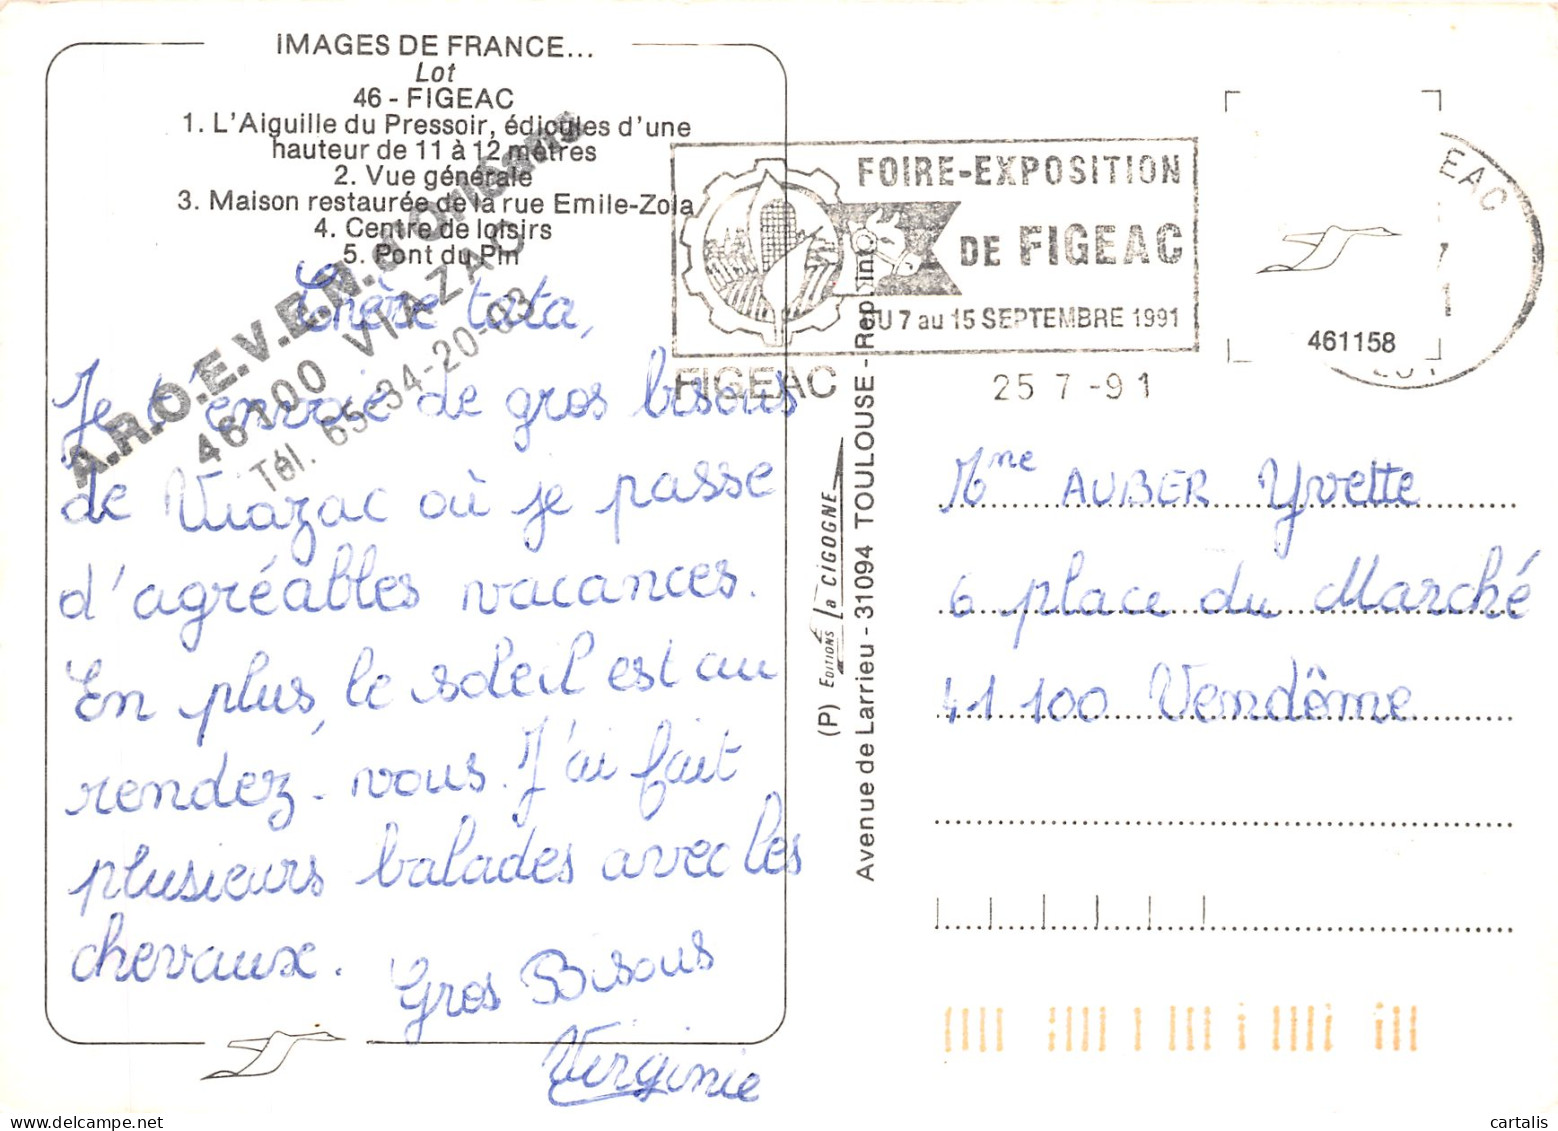 IMAGES DE FRANCE...
Lot
46 - FIGEAC
1. L'Aiguille du Pressoir, édicules d'une
hauteur de 11 à 12 mètres
2. Vue générale
3. Maison restaurée de la rue Emile-Zola
4. Centre de loisirs
5. Pont du Pin
A.R.O.E.V.E.N. d'Orléans
46100 VIAZAC
Tél. 65-34-20-03
Chère tata,
Je t'envoie de gros bisous
de Viazac où je passe
d'agréables vacances.
En plus, le soleil est au
rendez-vous. J'ai fait
plusieurs balades avec les
chevaux.
Gros Bisous
Virginie
FOIRE-EXPOSITION
DE FIGEAC
DU 7 au 15 SEPTEMBRE 1991
FIGEAC
25 7 -91
EAC
461158
LOT
(P) EDITIONS La CIGOGNE
Avenue de Larrieu - 31094 TOULOUSE - Rep. int
Mme AUBER Yvette
6 place du Marché
41100 Vendôme
cartalis